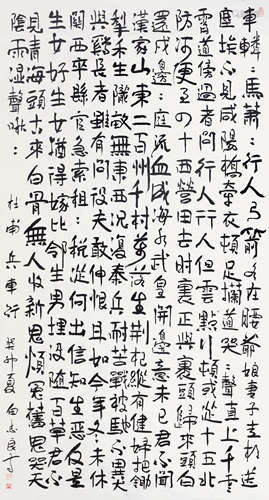 車轔:馬蕭:行人弓箭各在腰爺娘妻子走相送
塵埃不見咸陽橋牽衣頓足攔道哭:聲直上干雲
霄道傍過者問行人行人但云點行頻或從十五北
防河便至四十西營田去時里正與裹頭歸來頭白
還戍邊:庭流血成海水武皇開邊意未已君不聞
漢家山東二百州千村萬落生荊杞縱有健婦把鋤
犁禾生隴畝無東西況復秦兵耐苦戰被驅不異犬
與雞長者雖有問役夫敢伸恨且如今年冬未休
關西卒縣官急索租:稅從何出信知生男惡反是
生女好生女猶得嫁比鄰生男埋沒隨百草君不
見青海頭古來白骨無人收新鬼煩冤舊鬼哭天
陰雨濕聲啾:
杜甫兵車行
夏